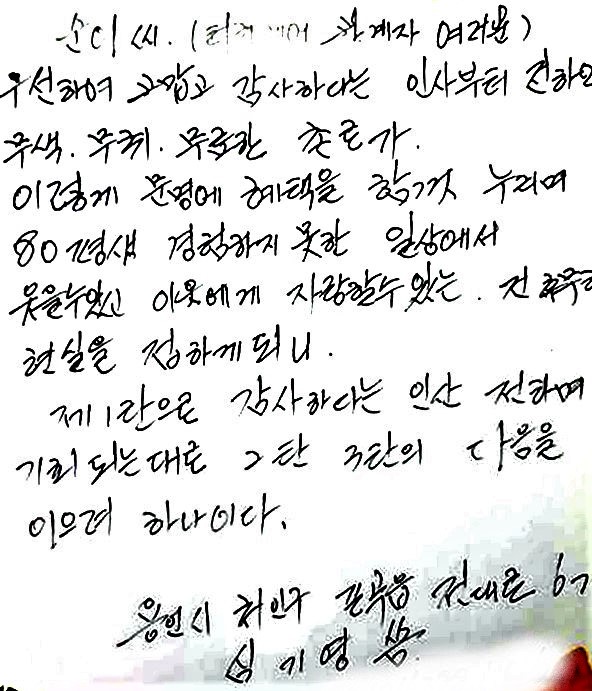 순이 씨. ( 관계자 여러분)
우선하여 고맙고 감사하다는 인사부터 전하오
무색. 무취. 무료한 촌로가.
이렇게 문명에 혜택을 힘껏 누리며
80평생 경험하지 못한 일상에서
웃을수있고 이웃에게 자랑할수 있는. 전후무
현실을 접하게 되니.
제1탄으로 감사하다는 인산 전하며
기회 되는대로 2탄 3탄의 다음을
이으려 하나이다.
용인시 처인구 포곡읍 전대로
심기영